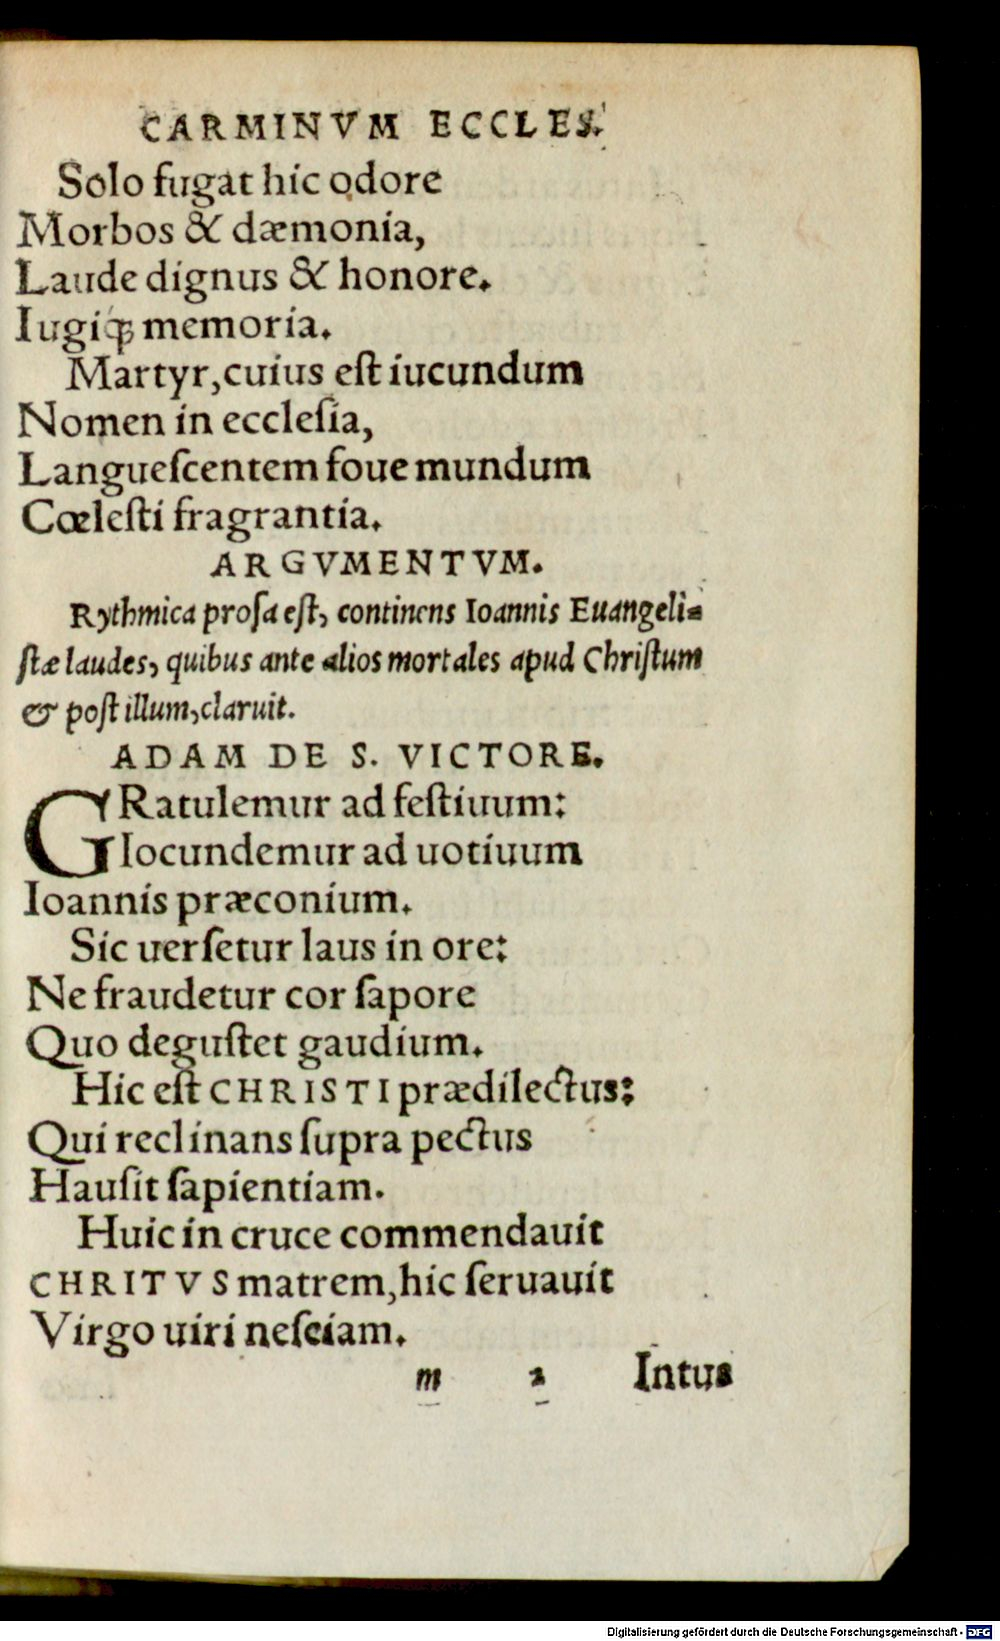 CARMINVM ECCLES.
Solo fugat hic odore
Morbos & dæmonia,
Laude dignus & honore.
Iugiqꝫ memoria.
Martyr, cuius eſt iucundum
Nomen in eccleſia,
Langueſcentem foue mundum
Cœleſti fragrantia.
ARGVMENTVM.
Rythmica proſa eſt, continens Ioannis Euangeli=
ſtæ laudes, quibus ante alios mortales apud Chriſtum
& poſt illum, claruit.
ADAM DE S. VICTORE.
GRatulemur ad feſtiuum:
Iocundemur ad uotiuum
Ioannis præconium.
Sic uerſetur laus in ore:
Ne fraudetur cor ſapore
Quo deguſtet gaudium.
Hic eſt CHRISTI prædilectus:
Qui reclinans ſupra pectus
Hauſit ſapientiam.
Huic in cruce commendauit
CHRITVS matrem, hic ſeruauit
Virgo uiri neſciam.
m 2 Intus
Digitalisierung gefördert durch die Deutsche Forschungsgemeinschaft - DFG